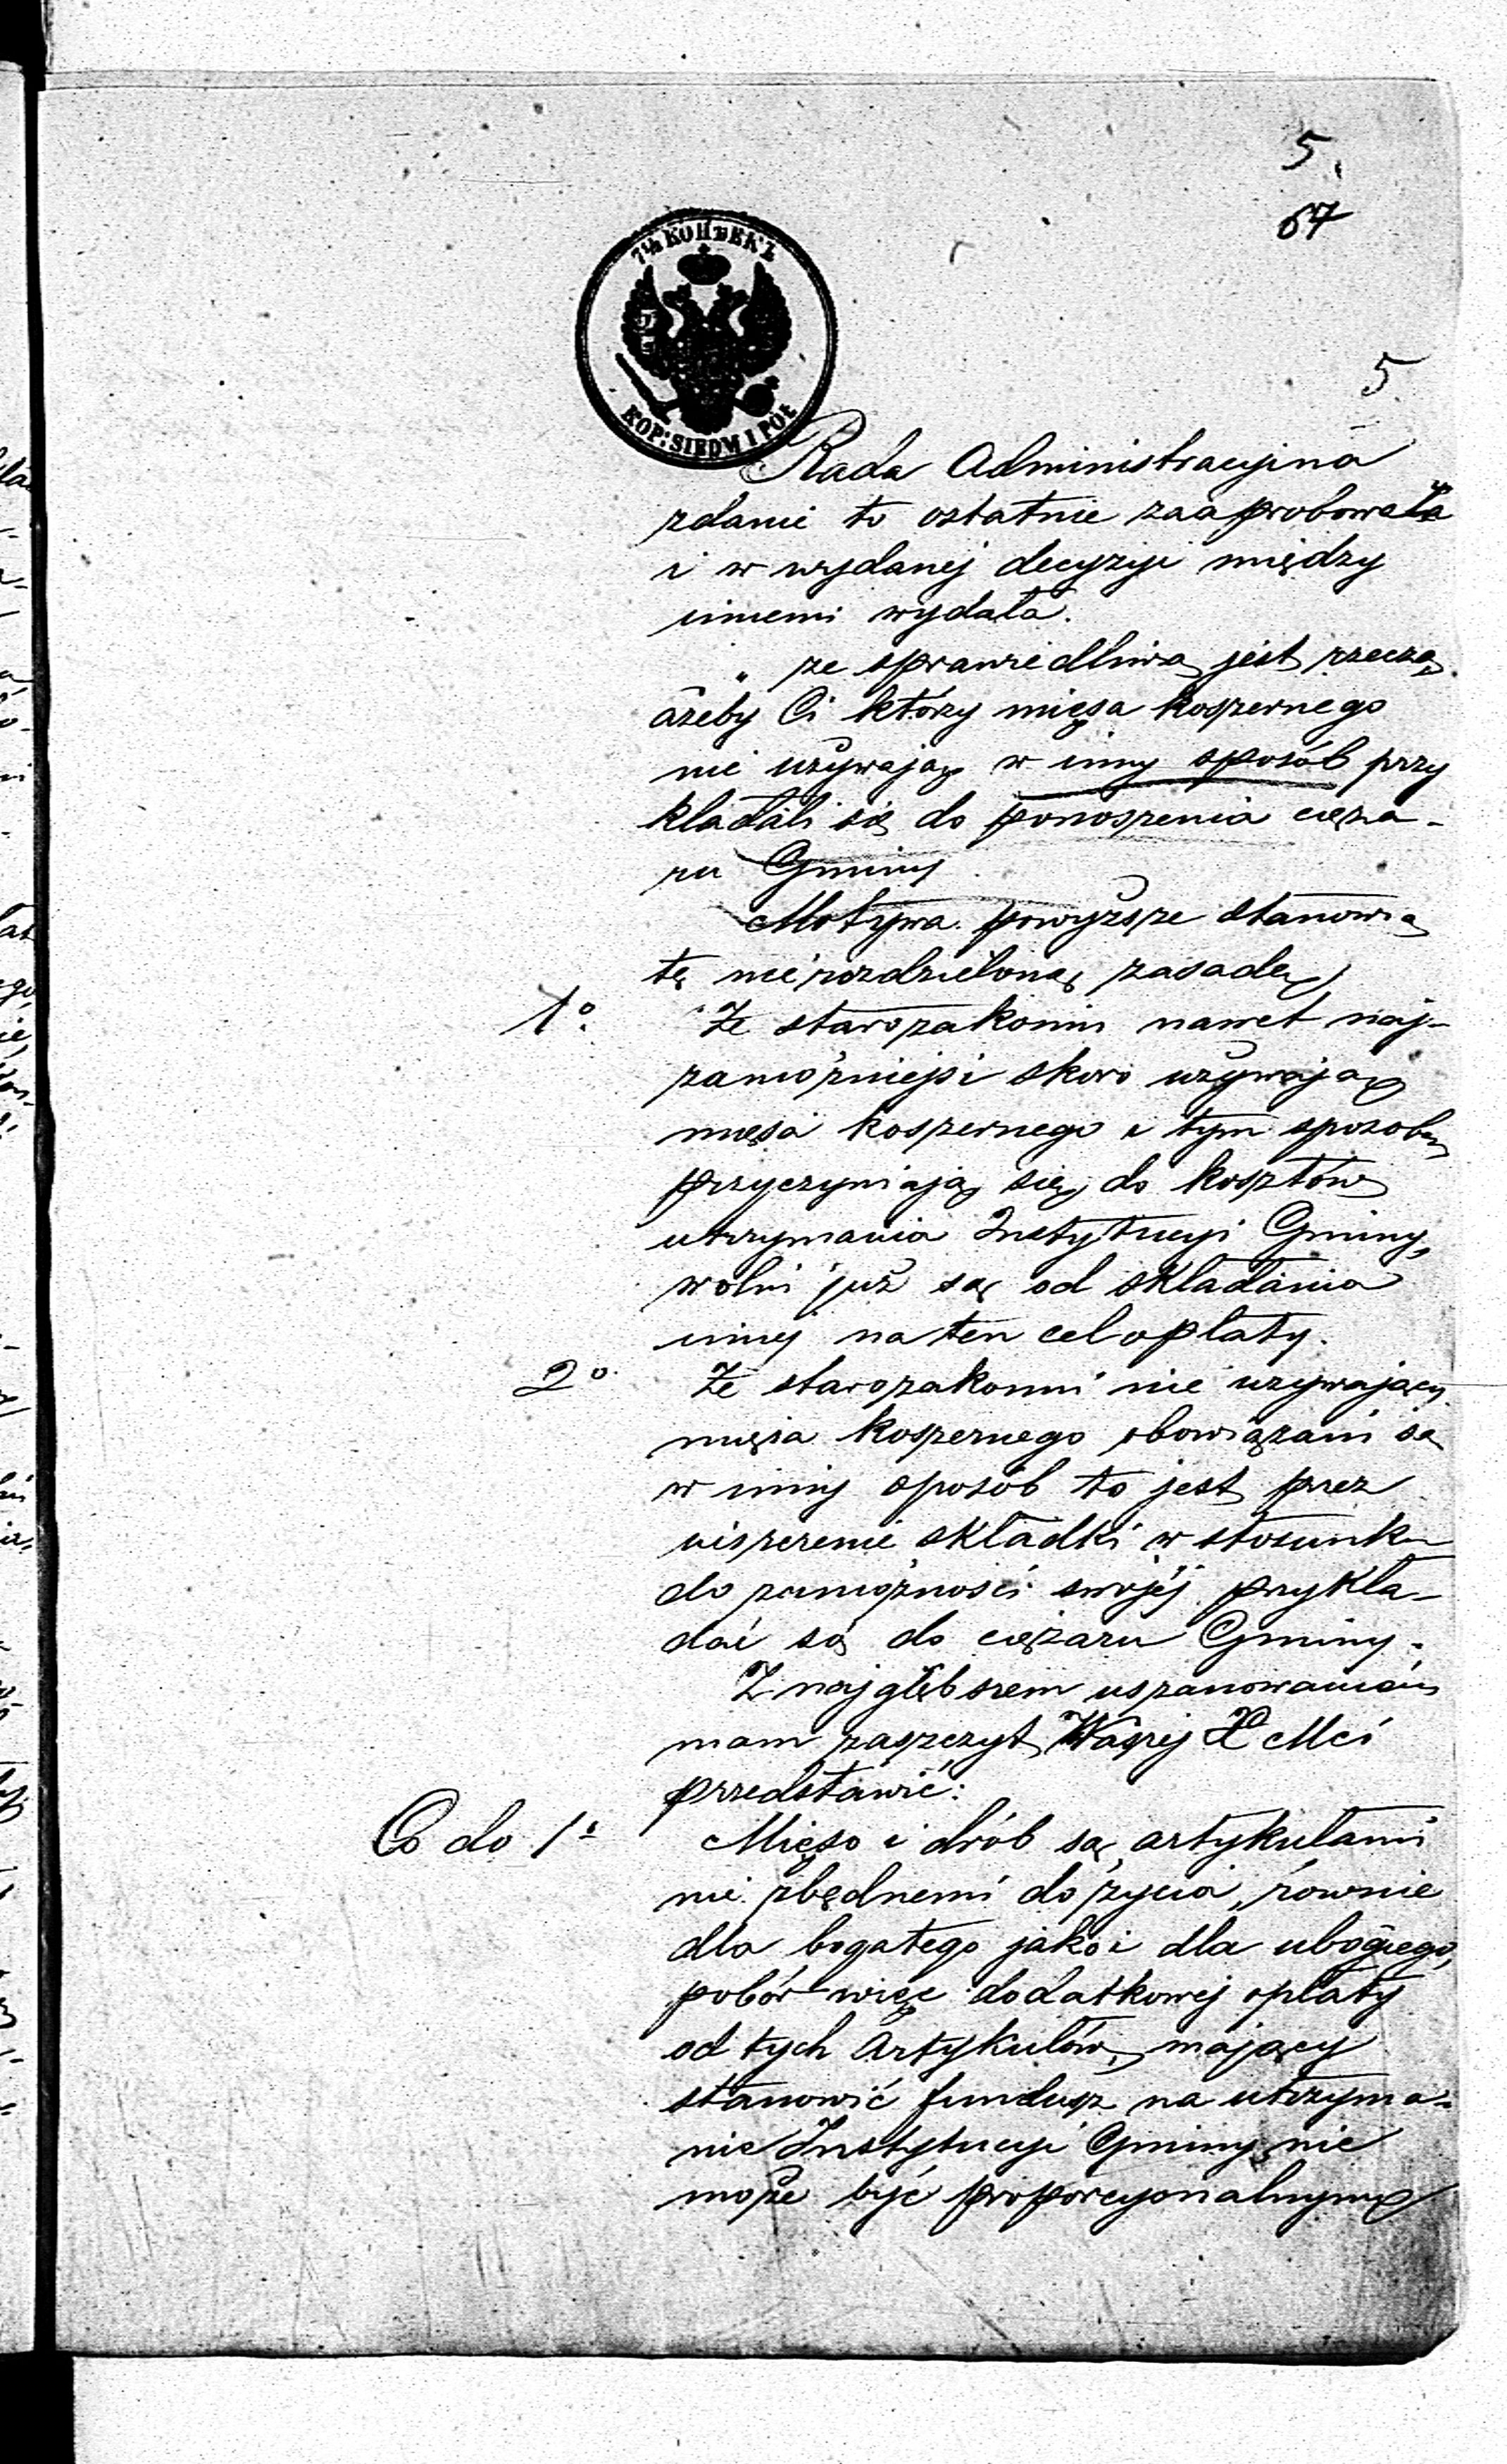 5.
67
7½ КОПѢЕКЪ
KOP: SIEDM I PÓŁ
5
Rada Administracyjna
zdanie to ostatnie zaaprobowała
i w wydanej decyzyi między
innemi wydała.
„ że sprawiedliwą jest rzeczą
ażeby Ci którzy mięsa koszernego
nie używają w inny sposób przy
kładali się do ponoszenia cięża-
ru Gminy.
Motywa powyższe stanowią
tę nierozdzieloną zasadę
1o. Że starozakonni nawet naj-
zamożniejsi skoro używają
mięsa koszernego i tym sposobem
przyczyniają się do kosztów
utrzymania Instytucyi Gminy,
wolni już są od składania
innej na ten cel opłaty.
2o. Że starozakonni nie używający
mięsa koszernego obowiązani są
w inny sposób to jest przez
uiszczenie składki w stosunku
do zamożności swojéj przykła-
dać się do ciężaru Gminy.
Z najgłębszem uszanowaniem
mam zaszczyt Waszej X Mci
przedstawić:
Co do 1o Mięso i drób są artykułami
nie zbędnemi do życia, równie
dla bogatego jako i dla ubogiego,
pobór więc dodatkowej opłaty
od tych Artykułów, mający
stanowić fundusz na utrzyma-
nie Instytucyi Gminy nie
może być proporcyonalnym